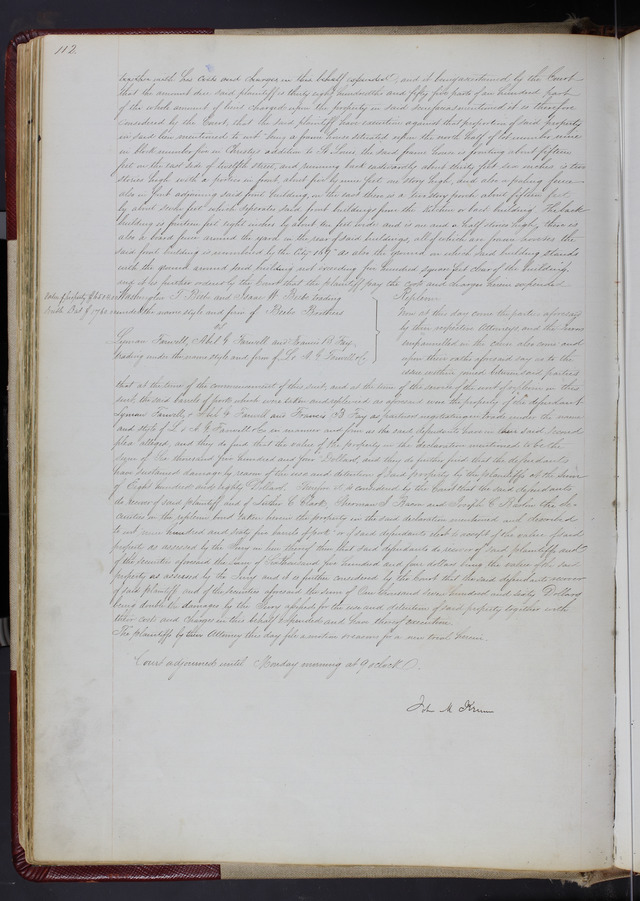 112.
together with his costs and charges in this behalf expended, and it being ascertained by the Court
that the amount due said plaintiff is thirty eight hundredths and fifty five parts of one hundredth part
of the whole amount of liens charged upon the property in said mentioned it is therefore
considered by the Court, that the said plaintiff have execution against that proportion of said property
in said lien mentioned to wit: being a frame house situated upon the north half of lot number nine
in block number five in Christy's addition to St Louis, the said frame house is fronting about fifteen
feet on the east side of twelfth street, and running back eastwardly about thirty feet is two
stories high with a porch in front about five by nine feet one story high, and also a
also in front adjoining said front building, in the rear there is a two story porch about fifteen feet
by about seven feet which separates said front buildings from the kitchen or back building. The back
building is fourteen feet eight inches by about ten feet wide and is one and a half stories high, there is
also a board fence around the yard in the rear of said buildings, all of which are frame houses the
said front building is numbered by the City 169 as also the ground on which said building stands
with the ground around said building not exceeding five hundred square feet clear of the buildings.
and it is further ordered by the Court that the plaintiff pay the costs and charges herein expended.
Value of property $6504.00
Double Dam $1760.00
Washington I Beebe and Isaac W. Beebe trading
under the name style and firm of Beebe Brothers
vs
Lyman Farwell, Abel G Farwell and Francis B. Fay,
trading under the name style and firm of L & A. G. Farwell & Co.
Replevin
Now at this day come the parties aforesaid
by their respective Attorneys and the Jurors
empannelled in the cause also come and
upon their oaths aforesaid say as to the
issue within joined between said parties
that at the time of the commencement of this suit, and at the time of the service of the writ of replevin in this
suit, the said barrels of pork which were taken and replevied as aforesaid were the property of the defendants
Lyman Farwell, Abel G Farwell and Francis B. Fay as partners negotiating in trade under the name
and style of L & A G Farwell & Co in manner and form as the said defendants have in their said second
plea alleged, and they do find that the value of the property in the declaration mentioned to be the
sum of Six thousand five hundred and four Dollars, and they do further find that the defendants
have sustained damage by reason of the use and detention of said property by the plaintiffs to the sum
of Eight hundred and eighty Dollars. Therefore it is considered by the Court that the said defendants
do recover of said plaintiff and of Luther C Clark, Sherman S. Bacon and Joseph C Barlow the securities
in the replevin bond taken herein the property in the said declaration mentioned and described
to wit nine hundred and sixty five barrels of pork or if said defendants elect to accept of the value of said
property as assessed by the Jury in lieu thereof then that said defendants do recover of said plaintiffs and
of the securities aforesaid the sum of Six thousand five hundred and four dollars being the value of the said
property as assessed by the Jury and it is further considered by the court that the said defendants recover
of said plaintiff and of the securities aforesaid the sum of One thousand seven hundred and sixty Dollars
being double the damages by the Jury assessed for the use and detention of said property together with
their costs and charges in this behalf expended and have thereof execution.
The plaintiffs by their Attorney this day file a motion & reasons for a new trial herein.
Court adjourned until Monday morning at 9 o'clock.
John M. Krum